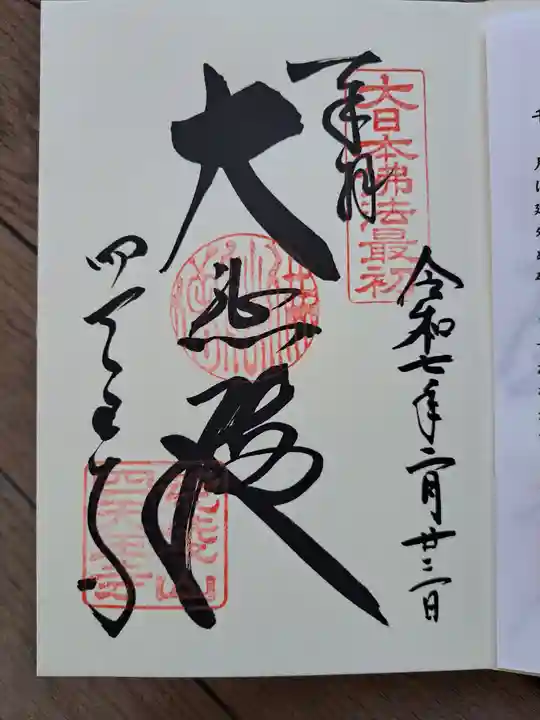 奉拝
大日本佛法最初
令和七年二月廿二日
大悲殿
四天王寺
荒陵山
四天王寺